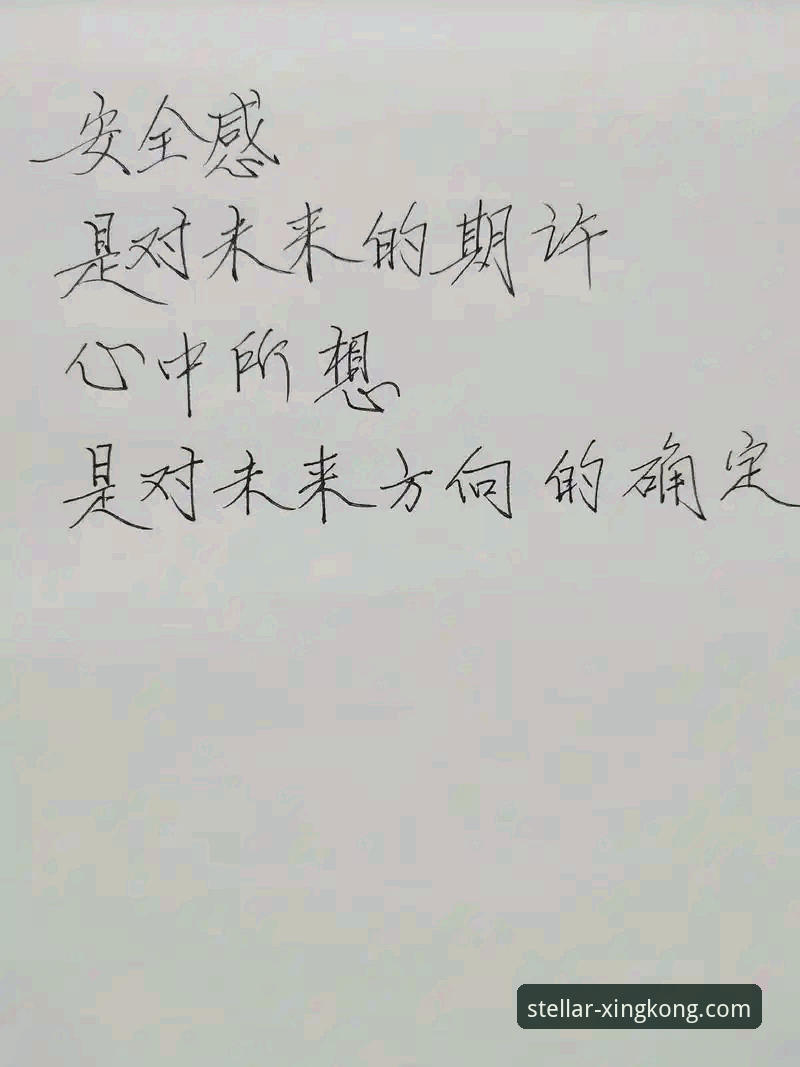 安全感
是对未来的期许
心中所想
是对未来方向的确定
stellar-xingkong.com